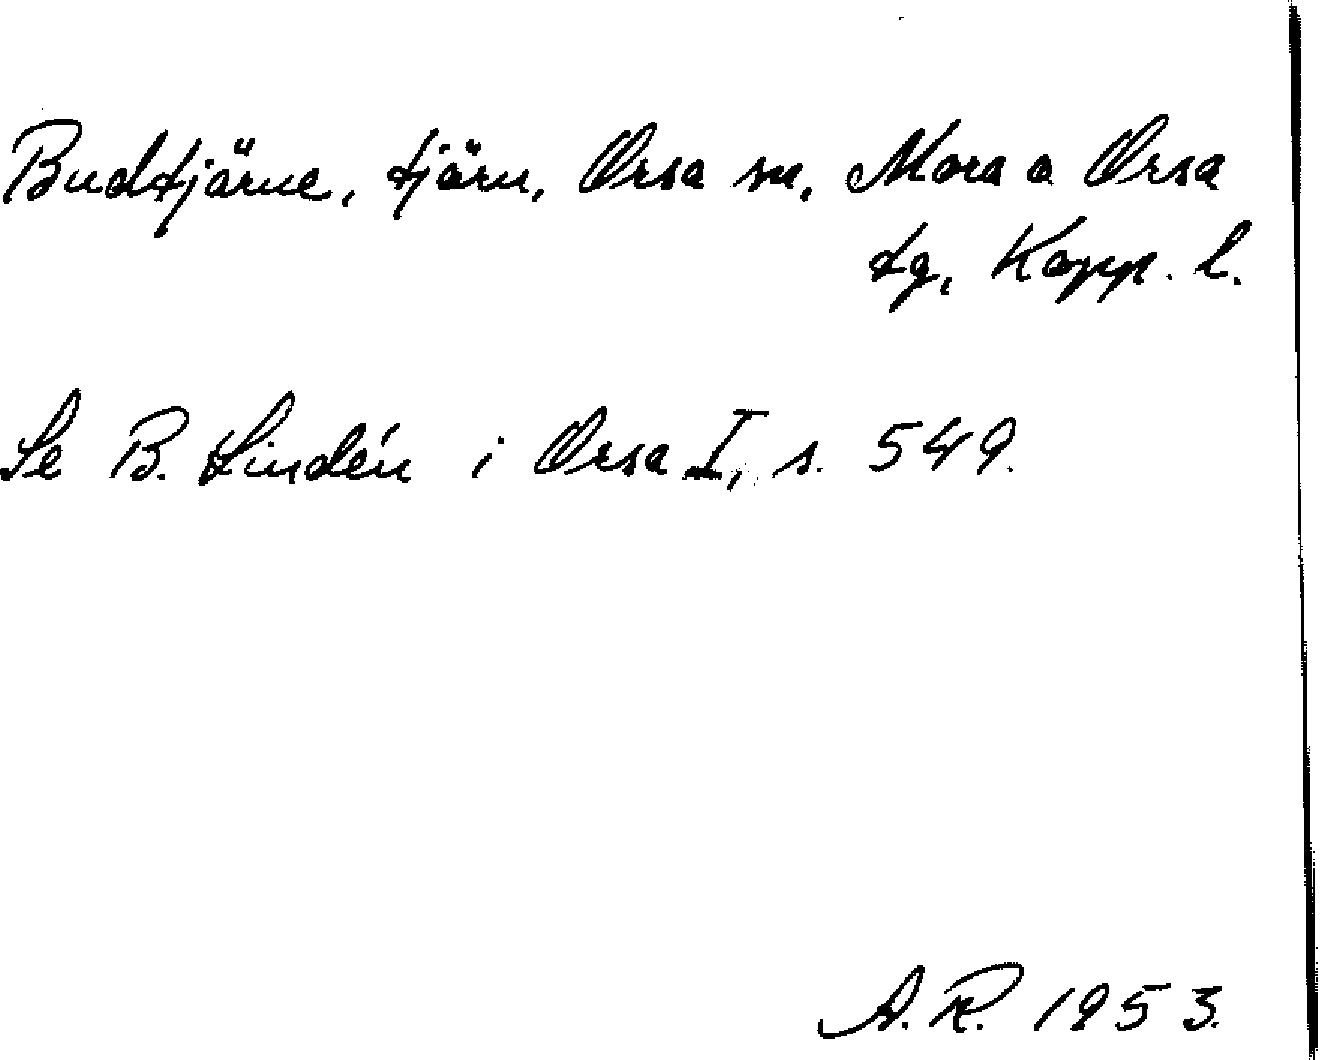 Budtjärne, tjärn, Orsa sn, Mora o Orsa
tg, Kopp. l.
Se B. Lindén i Orsa I, s. 549.
A. R. 1953.